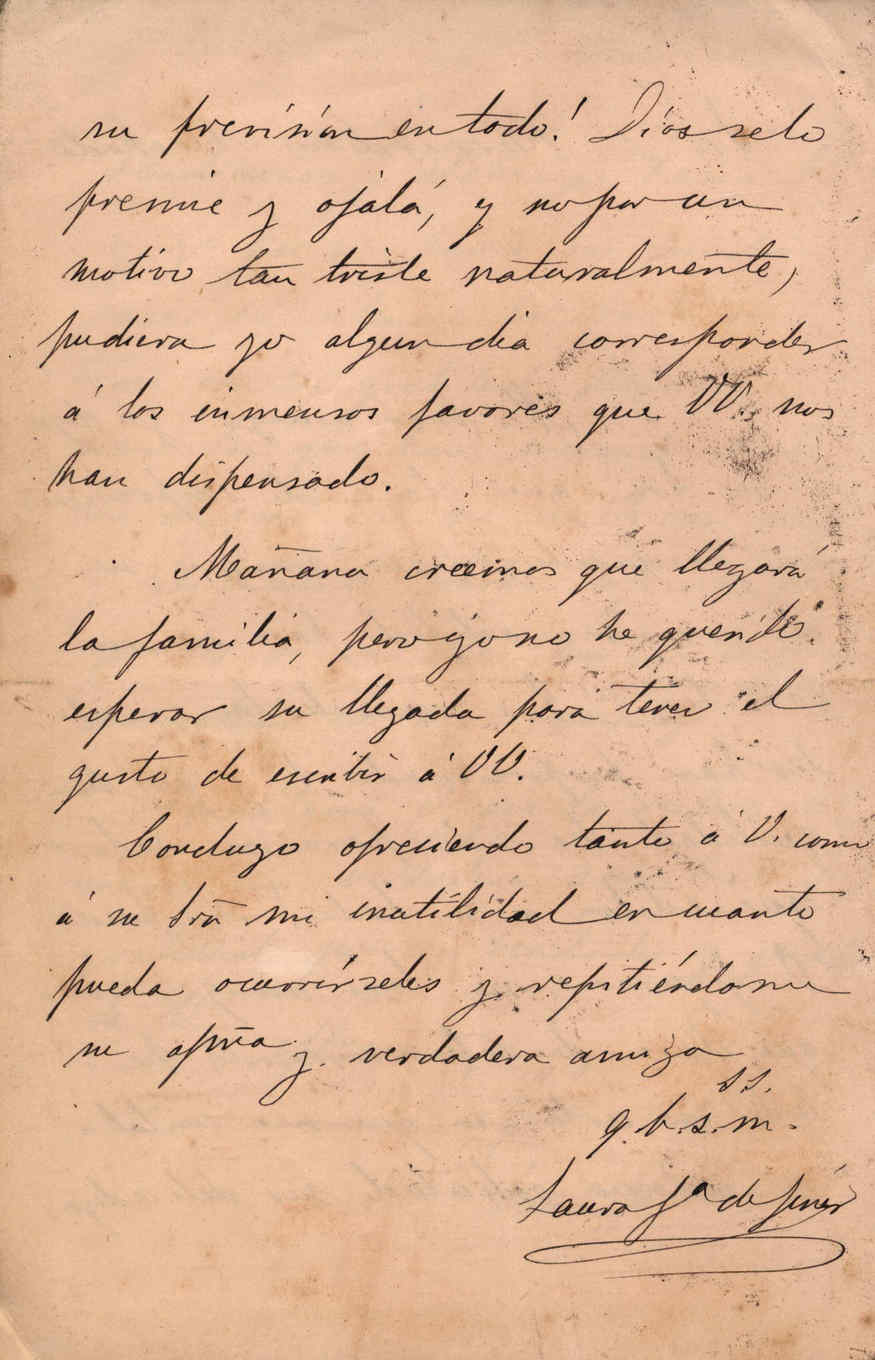 su previsión en todo! Dios se lo
premie y ojalá, y no por un
motivo tan triste naturalmente,
pudiera yo algun dia corresponder
á los inmensos favores que VV. nos
han dispensado.
Mañana creemos que llegará
la familia, pero yo no he querido
esperar su llegada para tener el
gusto de escribir á VV.
Concluyo ofreciendo tanto á V. como
á su Srã mi inutilidad en cuanto
pueda ocurrírseles y repitiéndome
su afmã y verdadera amiga
s s.
q. b. s. m.
Laura Gª de Giner